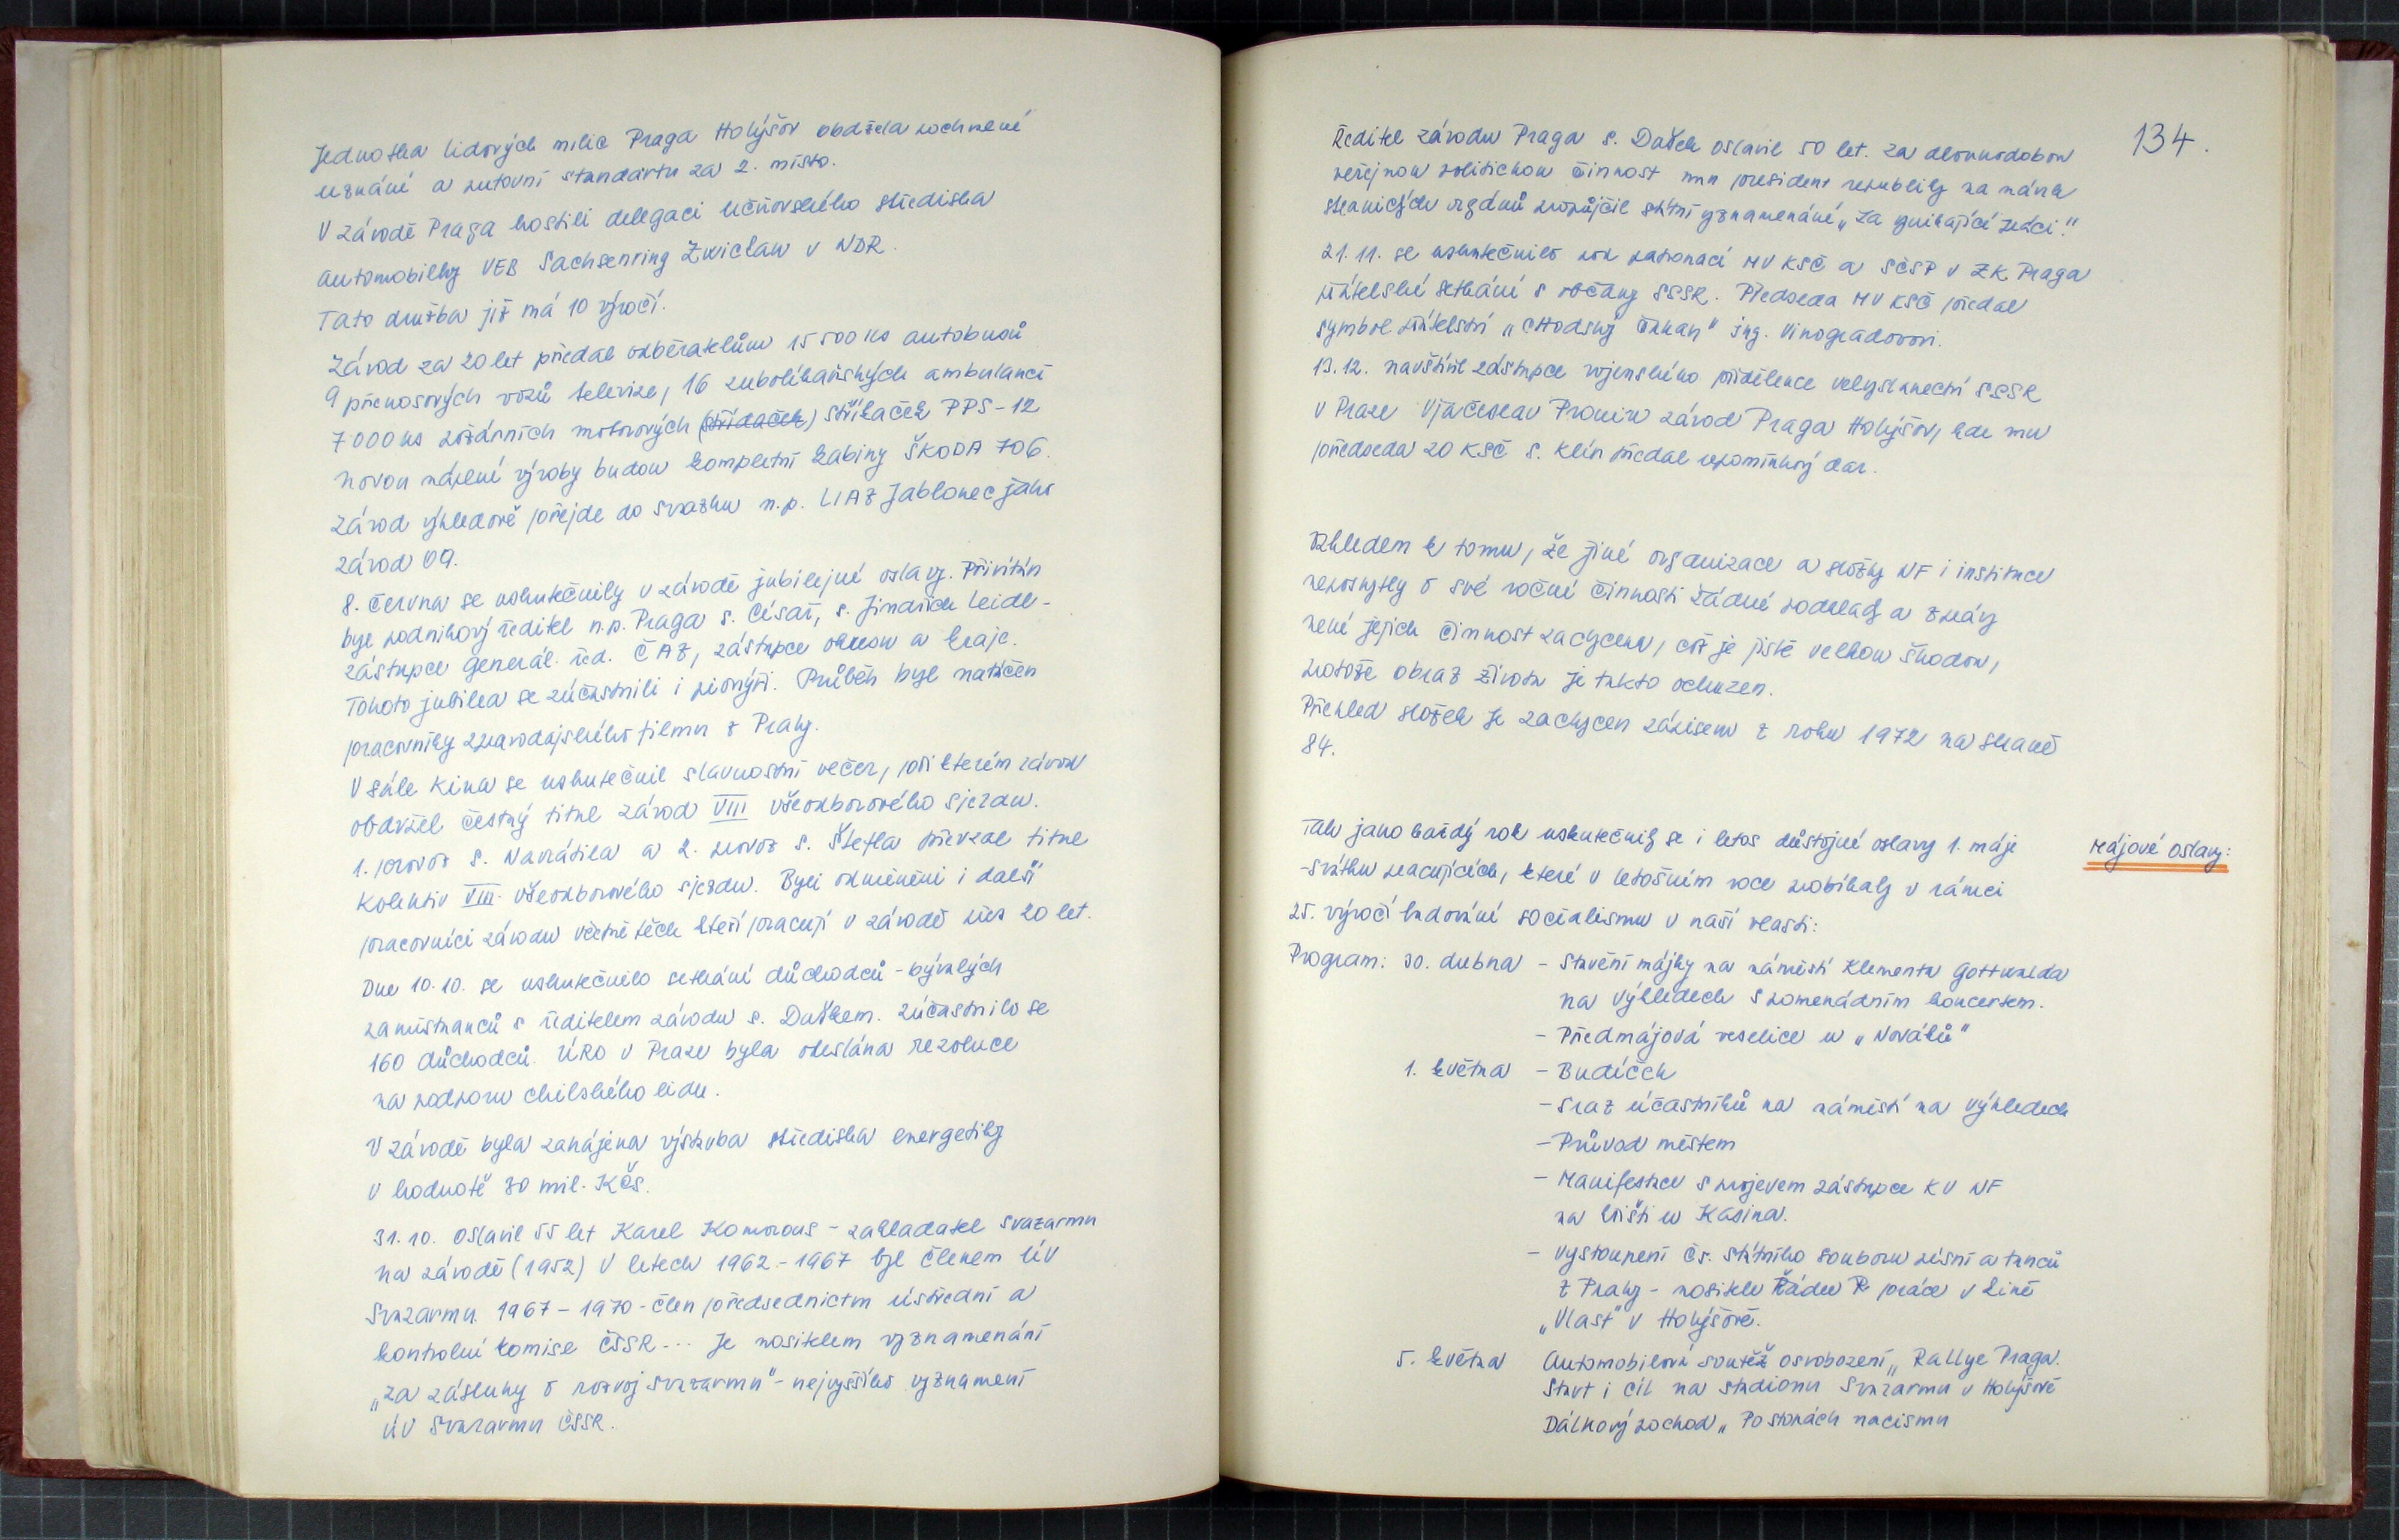 Jednotka lidových milic Praga Holýšov obdržela pochvalné
uznání a putovní standartu za 2. místo.
V závodě Praga hostili delegaci učňovského střediska
automobilky VEB Sachsenring Zwickau v NDR.
Tato družba již má 10 výročí.
Závod za 20 let předal odběratelům 15 500 ks autobusů
9 přenosových vozů televize, 16 zubolékařských ambulancí
7000 ks požárních motorových (střídaček) stříkaček PPS-12
Novou náplní výroby budou kompletní kabiny ŠKODA 706.
Závod výhledově přejde do svazku n.p. LIAZ Jablonec jako
závod 09.
8. června se uskutečnily v závodě jubilejné oslavy. Přivítán
byl podnikový ředitel n.p. Praga s. Císař, s. Jindřich Leidl-
zástupce generál. řed. ČAZ, zástupce okresu a kraje.
Tohoto jubilea se zúčastnili i pionýři. Průběh byl natáčen
pracovníky zpravodajského filmu z Prahy.
V sále kina se uskutečnil slavnostní večer, při kterém závod
obdržel čestný titul závod VIII všeodborového sjezdu.
1. provoz s. Navrátila a 2. provoz s. Štefla převzal titul
Kolektiv VIII. všeodborového sjezdu. Byli odměněni i další
pracovníci závodu včetně těch kteří pracují v závodě přes 20 let.
Dne 10.10. se uskutečnilo setkání důchodců - bývalých
zaměstnanců s ředitelem závodu s. Daškem. Zúčastnilo se
160 důchodců. ÚRO v Praze byla odeslána rezoluce
na podporu chilského lidu.
V závodě byla zahájena výstavba střediska energetiky
v hodnotě 30 mil. Kčs.
31.10. oslavil 55 let Karel Komorous - zakladatel Svazarmu
na závodě (1952) V letech 1962-1967 byl členem ÚV
Svazarmu. 1967-1970 - člen předsednictva ústřední a
kontrolní komise ČSSR... Je nositelem vyznamenání
„Za zásluhy o rozvoj Svazarmu" - nejvyššího vyznamení
ÚV Svazarmu ČSSR.
134.
Ředitel závodu Praga s. Dašek oslavil 50 let. Za dlouhodobou
veřejnou politickou činnost mu president republiky na návrh
stranických orgánů propůjčil státní vyznamenání „Za vynikající práci."
21.11. se uskutečnilo pod patronací MV KSČ a SČSP v ZK Praga
přátelské setkání s občany SSSR. Předseda MV KSČ předal
symbol přátelství „CHodský čakan" ing. Vinogradovovi.
13.12. navštívil zástupce vojenského přidělence velyslanectví SSSR
v Praze Vjačeslav Pronin závod Praga Holýšov, kde mu
předseda ZO KSČ s. Klín předal upomínkový dar.
Vzhledem k tomu, že jiné organizace a složky NF i instituce
neposkytly o své roční činnosti žádné podklady a zprávy
není jejich činnost zachycena, což je jistě velkou škodou,
protože obraz života je takto ochuzen.
Přehled složek je zachycen zápisem z roku 1972 na straně
84.
Tak jako každý rok uskutečnily se i letos důstojné oslavy 1. máje
-svátku pracujících, které v letošním roce probíhaly v rámci
25. výročí budování socialismu v naší vlasti:
Májové oslavy:
Program: 30. dubna - Stavění májky na náměstí Klementa Gottwalda
na Výhledech s promenádním koncertem.
- Předmájová veselice u „Nováků"
1. května - Budíček
- Sraz účastníků na náměstí na Výhledech
- Průvod městem
- Manifestace s projevem zástupce KV NF
na hřišti u Kasina.
- Vystoupení čs. státního souboru písní a tanců
z Prahy - nositele Řádu R práce v kině
„Vlast" v Holýšově.
5. května Automobilová soutěž osvobození „Rallye Praga.
Start i cíl na stadionu Svazarmu v Holýšově
Dálkový pochod „Po stopách nacismu